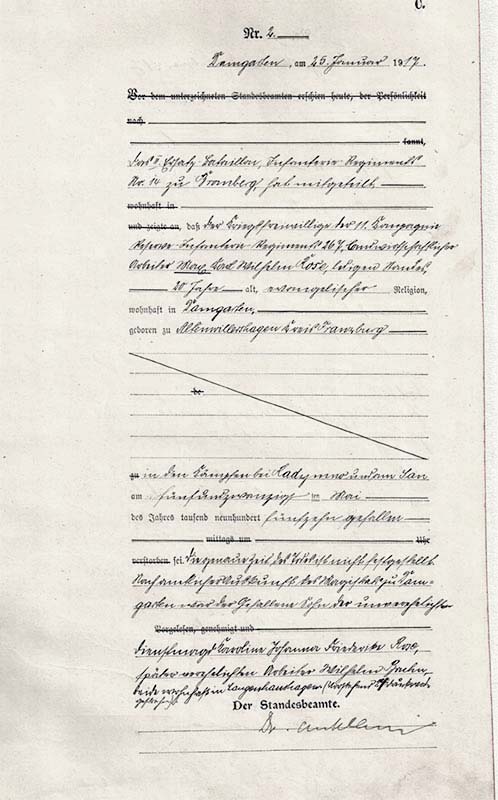 C.
Nr. 2.
Damgarten, am 25. Januar 1917.
Vor dem unterzeichneten Standesbeamten erschien heute, der Persönlichkeit
nach
kannt,
Das II. Ersatz-Bataillon, Infanterie-Regiments
Nr. 14 zu Bromberg hat mitgeteilt
wohnhaft in
und zeigte an, daß der Kriegsfreiwillige der 11. Kompagnie
Reserve-Infanterie-Regiments 267, landwirthschaftlicher
Arbeiter Max Karl Wilhelm Rose, ledigen Standes,
20 Jahre alt, evangelischer Religion,
wohnhaft in Damgarten,
geboren zu Altenwillershagen Kreis Franzburg
be
zu in den Kämpfen bei Radymno und am San
am fünfundzwanzigsten Mai
des Jahres tausend neunhundert fünfzehn gefallen
mittags um Uhr
verstorben sei. Die genaue Zeit des Todes ist nicht festgestellt.
Nach amtlicher Auskunft des Magistrats zu Dam-
garten war der Gefallene Sohn der unverehelichten
Vorgelesen, genehmigt und
Dienstmagd Caroline Johanna Friederike Rose,
später verehelichten Arbeiter Wilhelm
beide wohnhaft in Langenhanshagen (Vorstehend
gestrichen)
Der Standesbeamte.